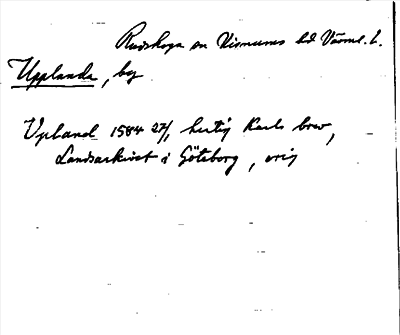 Rudskoga sn Visnums hd Värml. l.
Upplanda, by
Vpland 1584 27/1 hertig Karls brev,
Landsarkivet i Göteborg, orig